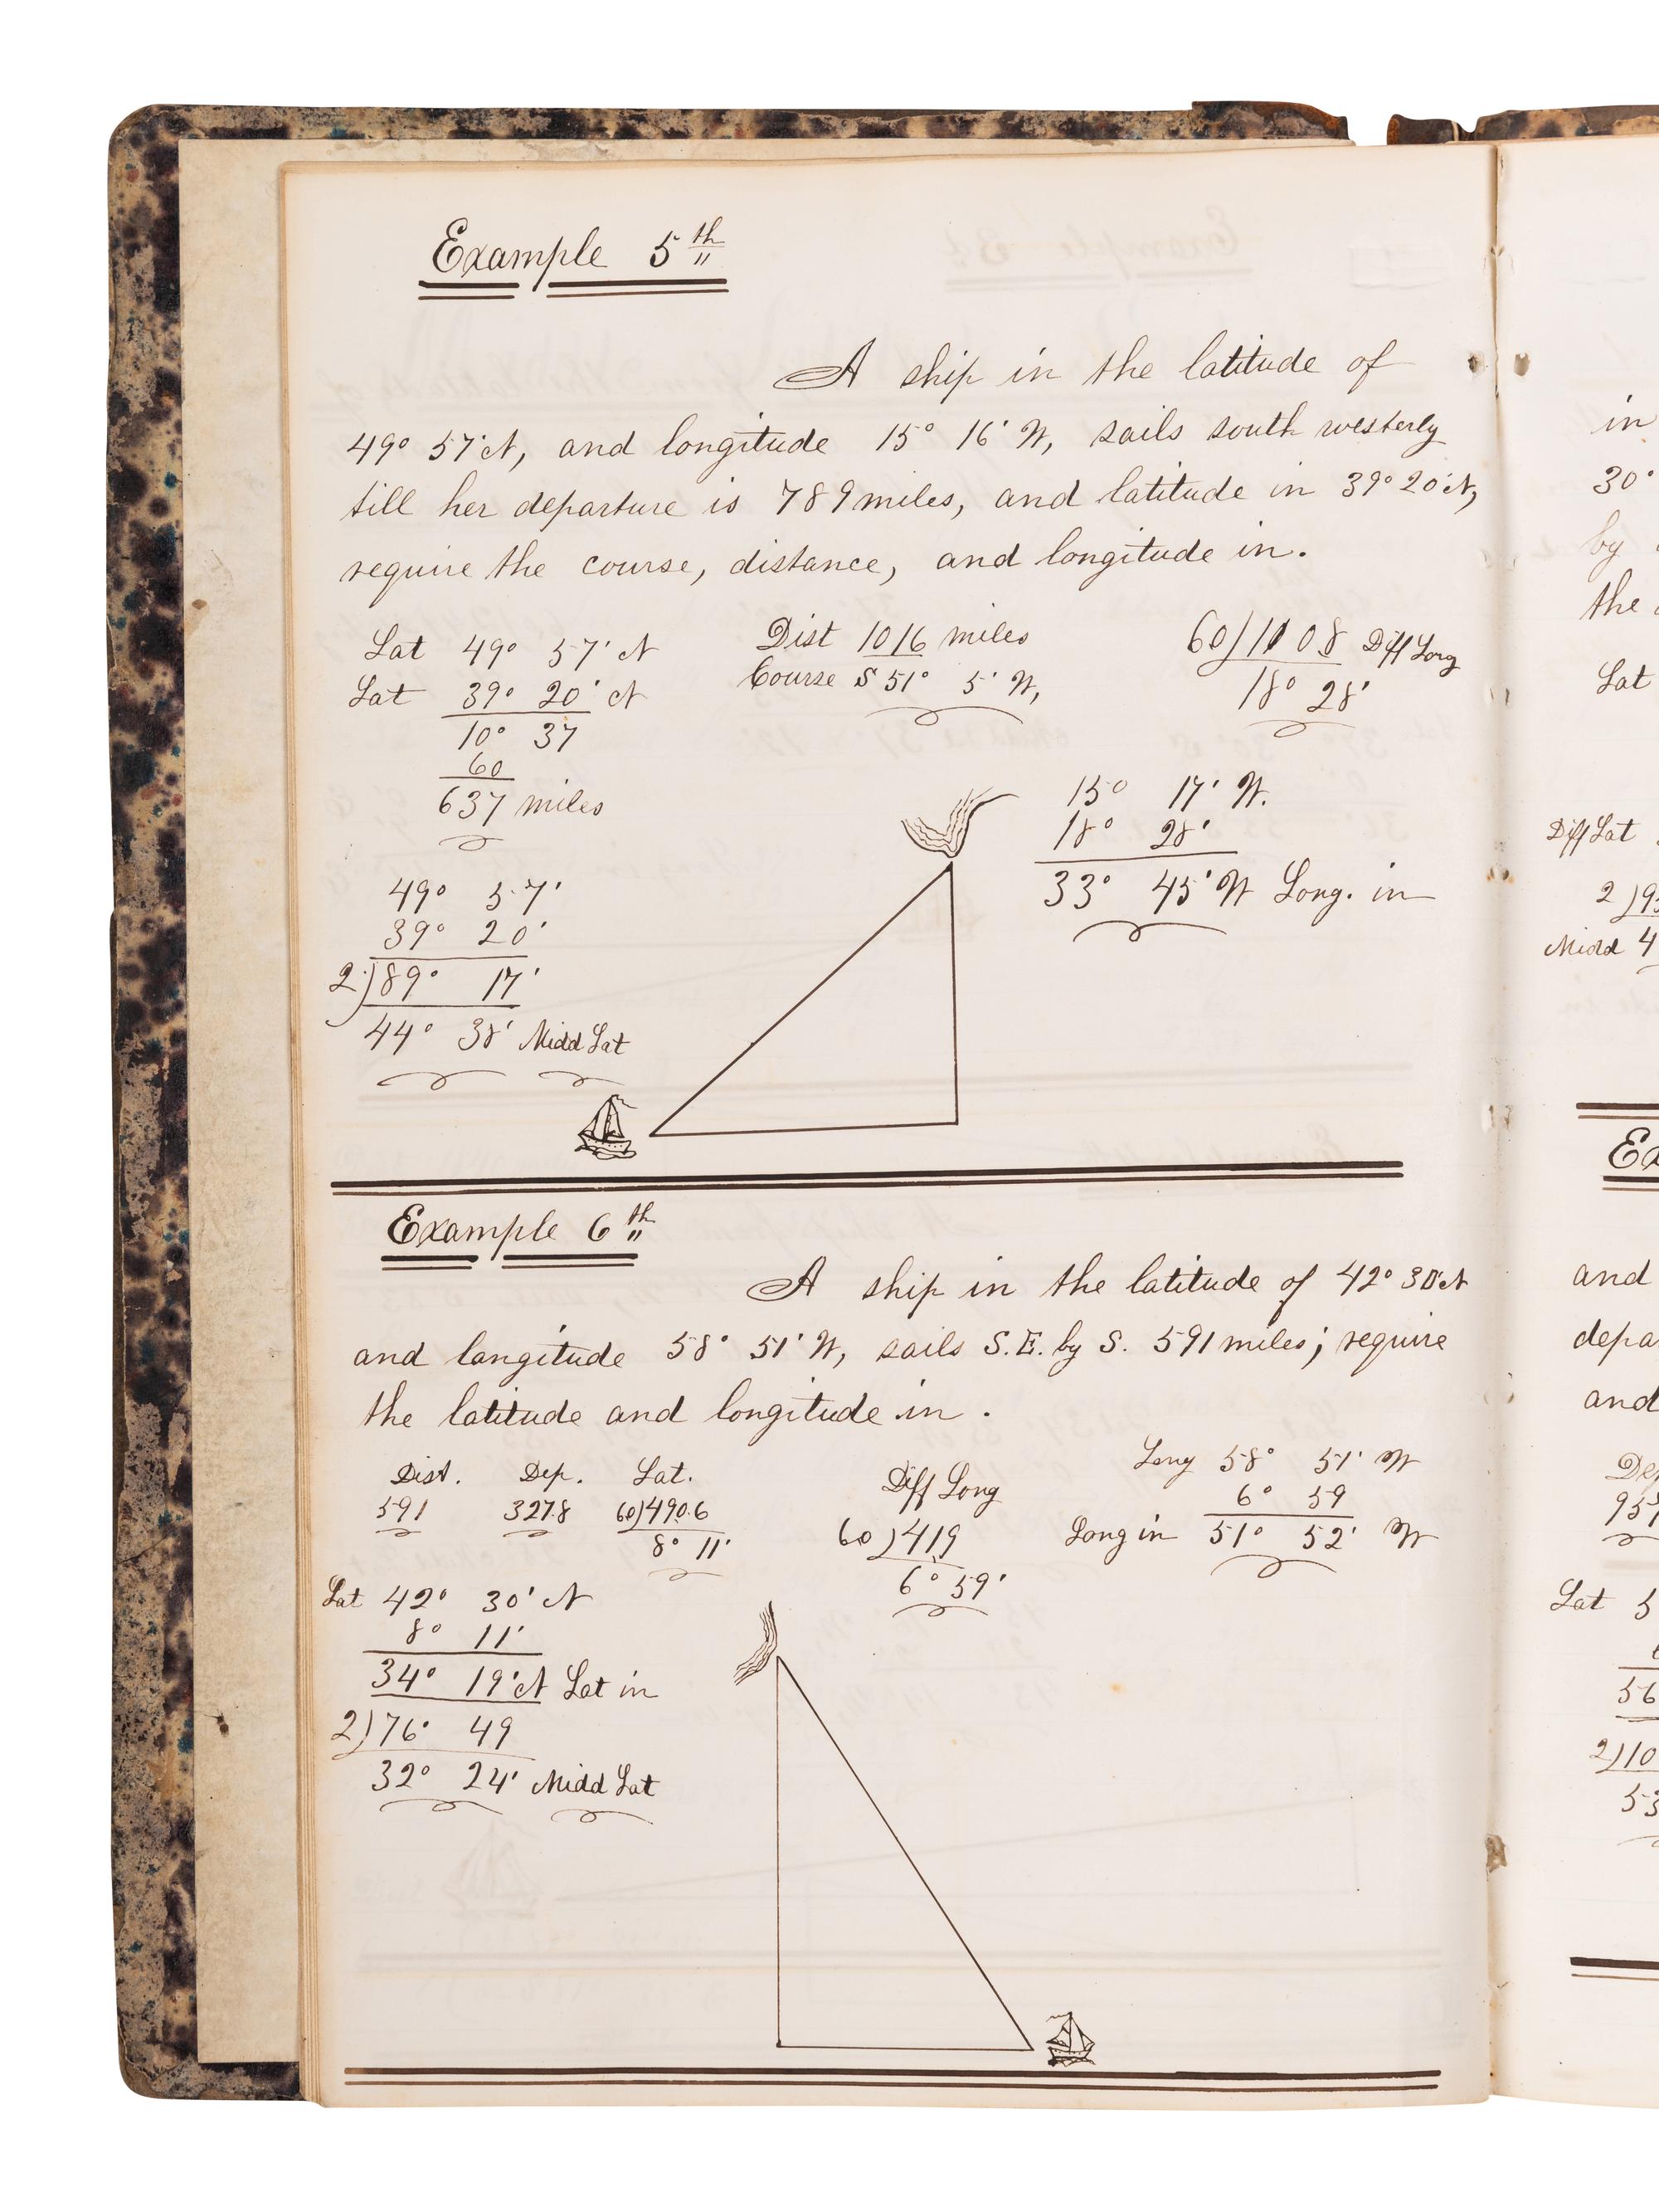 Example 5th
A ship in the latitude of
49° 57' N, and longitude 15° 16' W, sails south westerly
till her departure is 789 miles, and latitude in 39° 20' N,
require the course, distance, and longitude in.
Lat 49° 57' N
Lat 39° 20' N
10° 37
60
637 miles
49° 57'
39° 20'
2)89° 17'
44° 38' Midd Lat
Dist 1016 miles
Course S 51° 5' W,
60)1108 Diff Long
18° 28'
15° 17' W.
18° 28'
33° 45' W Long. in
Example 6th
A ship in the latitude of 42° 30' N
and langitude 58° 51' W, sails S.E. by S. 591 miles; require
the latitude and longitude in.
Dist. Dep. Lat.
591 327.8 60)490.6
8° 11'
Lat 42° 30' N
8° 11'
34° 19' N Lat in
2)76° 49
32° 24' Midd Lat
Diff Long
60)419
6° 59'
Long 58° 51' W
6° 59
Long in 51° 52' W
in
30°
by
the
Lat
Diff Lat
Midd 4
Ex
and
depa
and
Lat 5
56
2)10
53